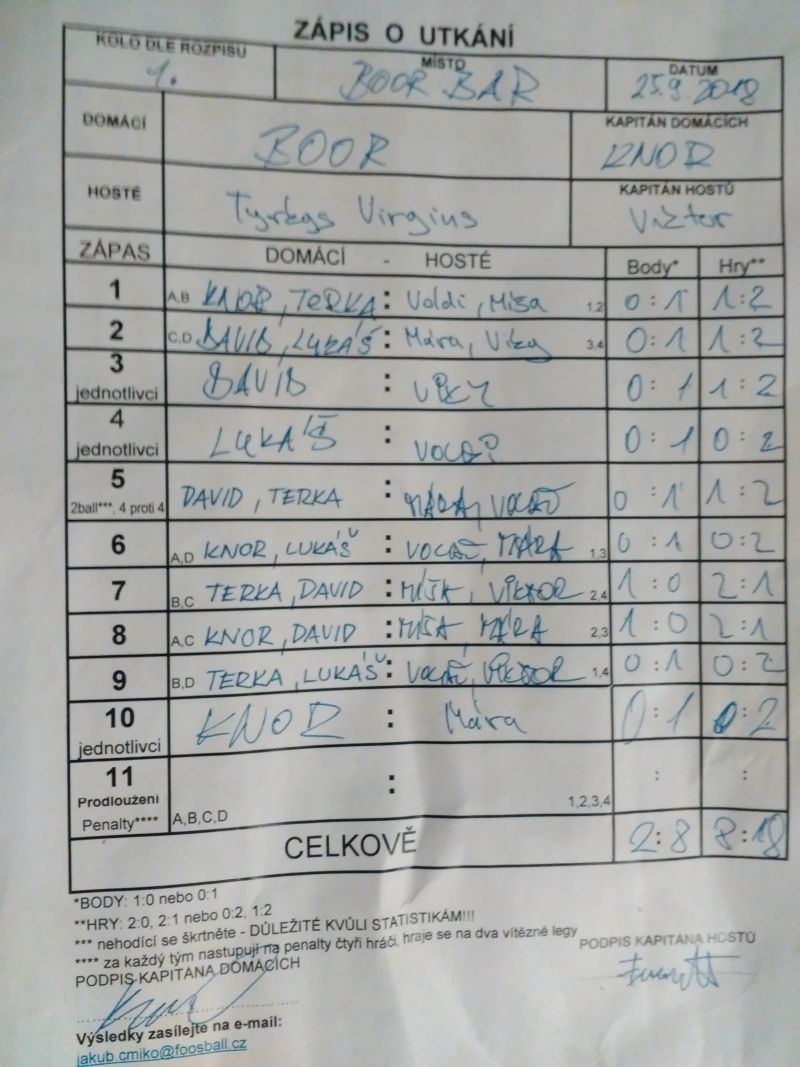 ZÁPIS O UTKÁNÍ
KOLO DLE ROZPISU MÍSTO DATUM
1. BOOR BAR 25.9.2018
DOMÁCÍ BOOR KAPITÁN DOMÁCÍCH KNOR
HOSTÉ Tyrkys Virgius KAPITÁN HOSTŮ Viktor
ZÁPAS DOMÁCÍ - HOSTÉ Body* Hry**
1 A,B KNOR, TERKA : Voldi, Míša 1,2 0:1 1:2
2 C,D DAVID, LUKÁŠ : Mára, Viky 3,4 0:1 1:2
3 jednotlivci DAVID : VIKY 0:1 1:2
4 jednotlivci LUKÁŠ : 0:1 0:2
5 2ball***, 4 proti 4 DAVID, TERKA : MÁRA, 0:1 1:2
6 A,D KNOR, LUKÁŠ : MÁRA 1,3 0:1 0:2
7 B,C TERKA, DAVID : MÍŠA, VIKTOR 2,4 1:0 2:1
8 A,C KNOR, DAVID : MÍŠA, MÁRA 2,3 1:0 2:1
9 B,D TERKA, LUKÁŠ : VIKTOR 1,4 0:1 0:2
10 jednotlivci KNOR : Mára 0:1 0:2
11 Prodloužení Penalty**** A,B,C,D : 1,2,3,4 : :
CELKOVĚ 2:8 8:18
*BODY: 1:0 nebo 0:1
**HRY: 2:0, 2:1 nebo 0:2, 1:2
*** nehodící se škrtněte - DŮLEŽITÉ KVŮLI STATISTIKÁM!!!
**** za každý tým nastupují na penalty čtyři hráči, hraje se na dva vítězné legy
PODPIS KAPITÁNA DOMÁCÍCH PODPIS KAPITÁNA HOSTŮ
Výsledky zasílejte na e-mail:
jakub.cmiko@foosball.cz